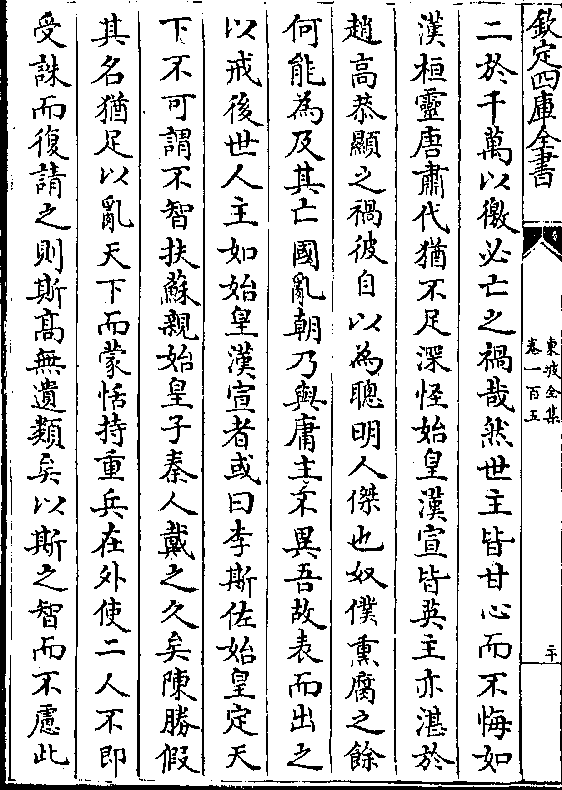 欽定四庫全書
東坡全集
卷一百五
二十
二於千萬以徼必亡之禍哉然世主皆甘心而不悔如
漢桓靈唐肅代猶不足深怪始皇漢宣皆英主亦湛於
趙高恭顯之禍彼自以為聰明人傑也奴僕熏腐之餘
何能為及其亡國亂朝乃與庸主不異吾故表而出之
以戒後世人主如始皇漢宣者或曰李斯佐始皇定天
下不可謂不智扶蘇親始皇子秦人戴之久矣陳勝假
其名猶足以亂天下而蒙恬持重兵在外使二人不即
受誅而復請之則斯高無遺類矣以斯之智而不慮此